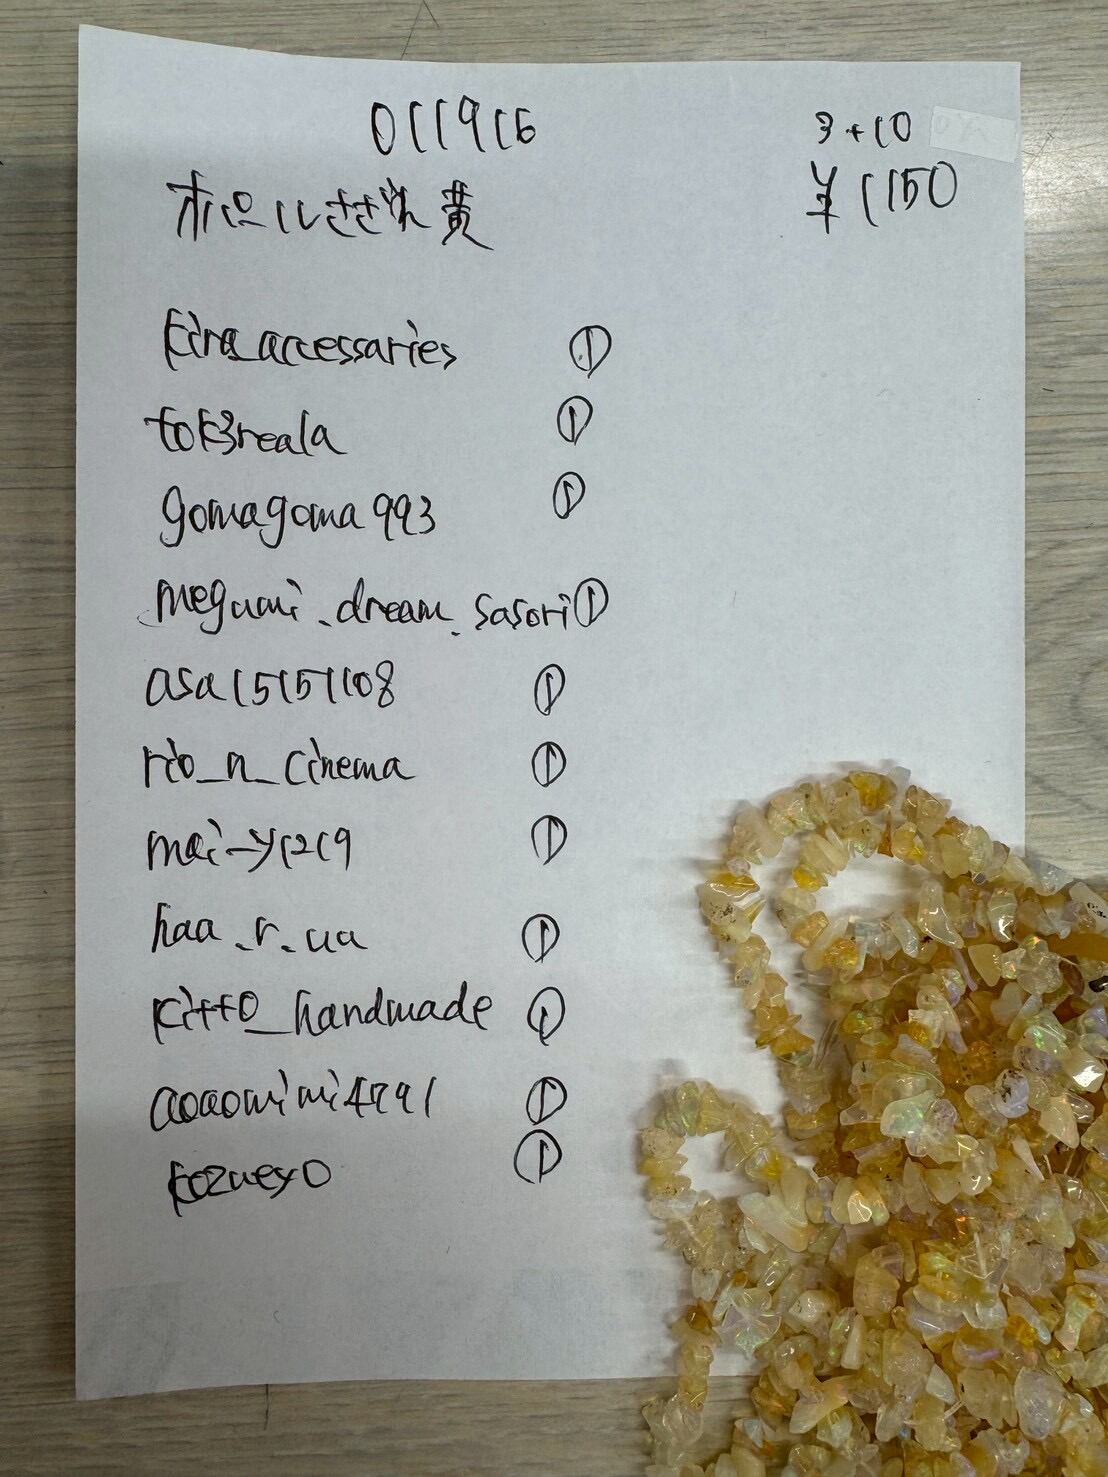 011916
3+10
オパールさざれ 黄
¥1150
kira_accessaries ①
tok3reala ①
gomagoma993 ①
megumi.dream.sasori ①
asa15151108 ①
rio_n_cinema ①
mai-y1219 ①
haa.r.ua ①
kitto_handmade ①
aoaomimi4791 ①
kozueyo ①